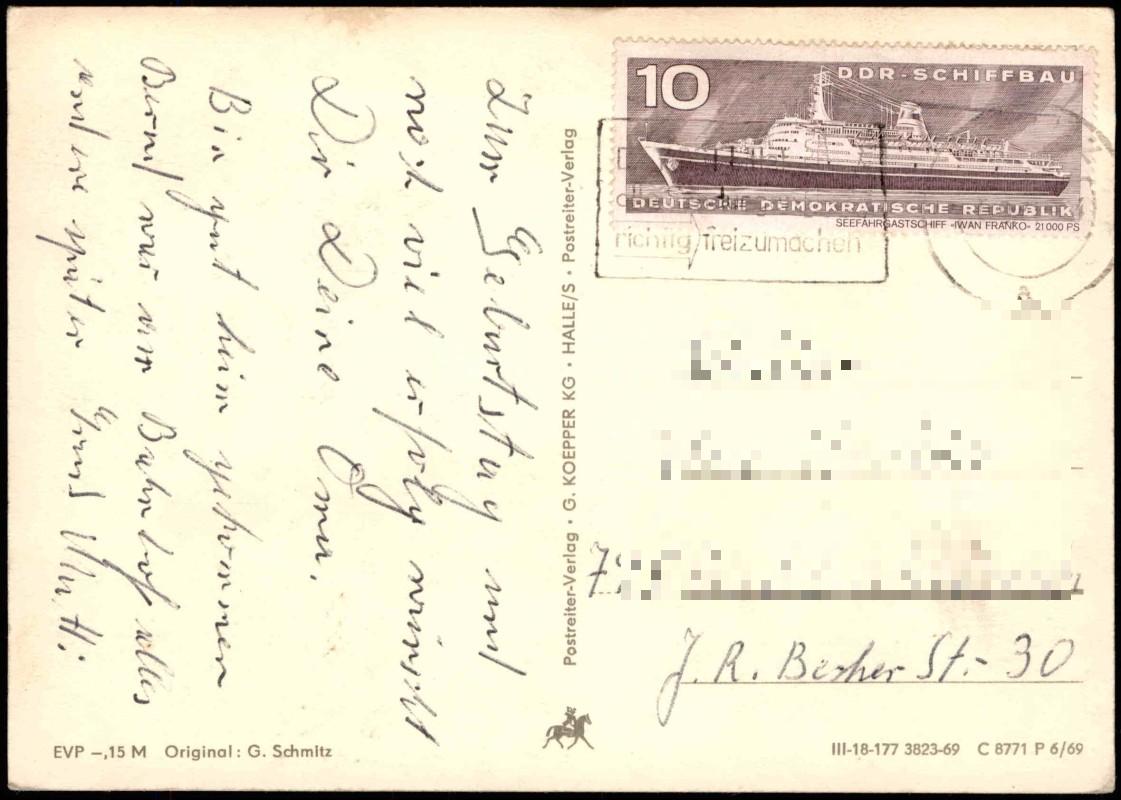 10
DDR-SCHIFFBAU
DEUTSCHE DEMOKRATISCHE REPUBLIK
SEEFAHRGASTSCHIFF »IWAN FRANKO« 21000 PS
richtig freizumachen
Zum Geburtstag und
noch viel Erfolg wünscht
Dir Deine Oma.
Bin gut gekommen
Bernd war am Bahnhof alles
weitere später Gruß Mutti
Postreiter-Verlag · G. KOEPPER KG · HALLE/S · Postreiter-Verlag
J. R. Becher Str. 30
EVP –,15 M Original: G. Schmitz
III-18-177 3823-69 C 8771 P 6/69